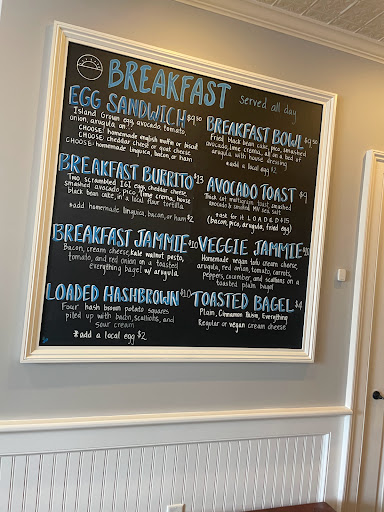 BREAKFAST served all day
EGG SANDWICH $9.50
Island Grown egg, avocado, tomato,
onion, arugula on
CHOOSE: homemade english muffin or biscuit
CHOOSE: cheddar cheese or goat cheese
CHOOSE: homemade linguica, bacon, or ham
BREAKFAST BURRITO $13
Two scrambled IGI eggs, cheddar cheese,
smashed avocado, pico, lime crema, house
black bean cake, in a local flour tortilla
*add homemade linguica, bacon, or ham $2
BREAKFAST JAMMIE $10
Bacon, cream cheese, kale walnut pesto,
tomato, and red onion on a toasted
everything bagel w/ arugula
LOADED HASHBROWN $10
Four hash brown potato squares
piled up with bacon, scallions, and
sour cream
*add a local egg $2
BREAKFAST BOWL $9.50
Fried black bean cake, pico, smashed
avocado, lime crema, all on a bed of
arugula with house dressing
*add a local egg $2
AVOCADO TOAST $9
Thick cut multigrain toast, smashed
avocado & smoked MV sea salt
*ask for it LOADED $15
(bacon, pico, arugula, fried egg)
VEGGIE JAMMIE
Homemade vegan tofu cream cheese,
arugula, red onion, tomato, carrots,
peppers, cucumber, and scallions on a
toasted plain bagel
TOASTED BAGEL $4
Plain, Cinnamon Raisin, Everything
Regular or vegan cream cheese